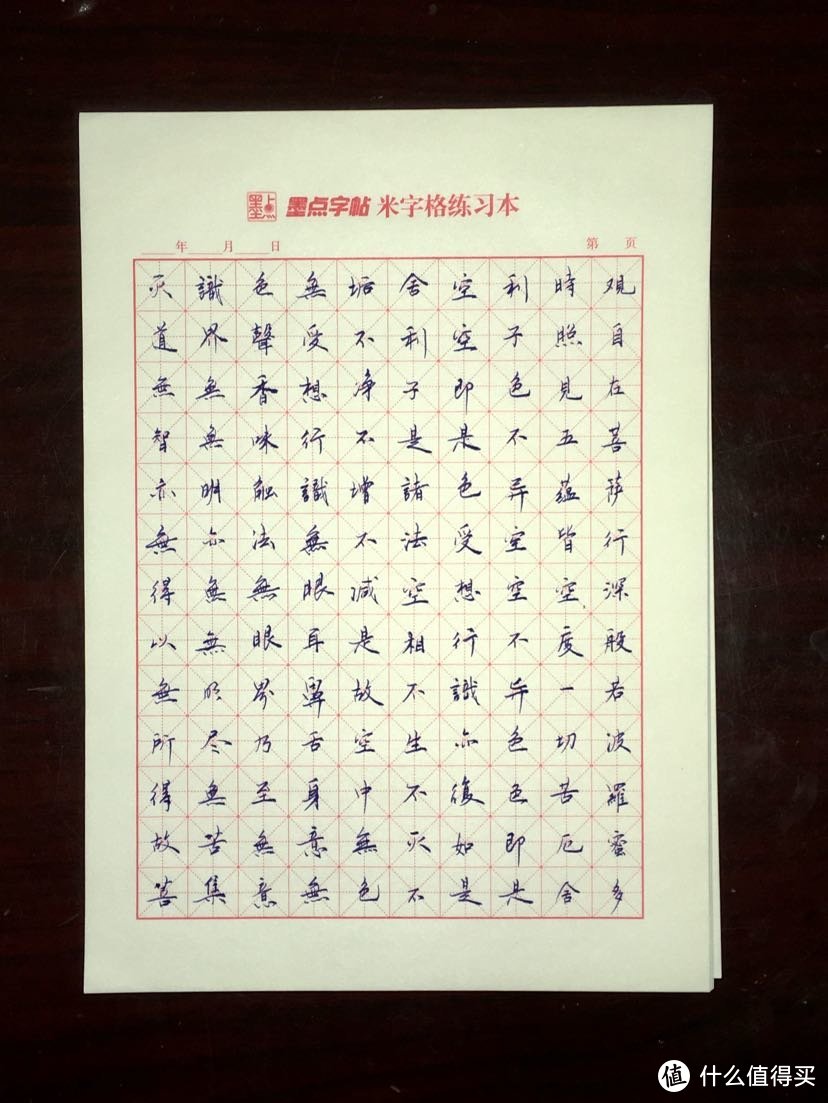 墨点
墨点字帖 米字格练习本
年 月 日 第 页
观自在菩萨行深般若波羅蜜多
時照見五蕴皆空度一切苦厄舍
利子色不异空空不异色色即是
空空即是色受想行識亦復如是
舍利子是諸法空相不生不灭不
垢不净不增不减是故空中無色
無受想行識無眼耳鼻舌身意無
色聲香味触法無眼界乃至無意
識界無無明亦無無明尽無苦集
灭道無智亦無得以無所得故菩
值 什么值得买